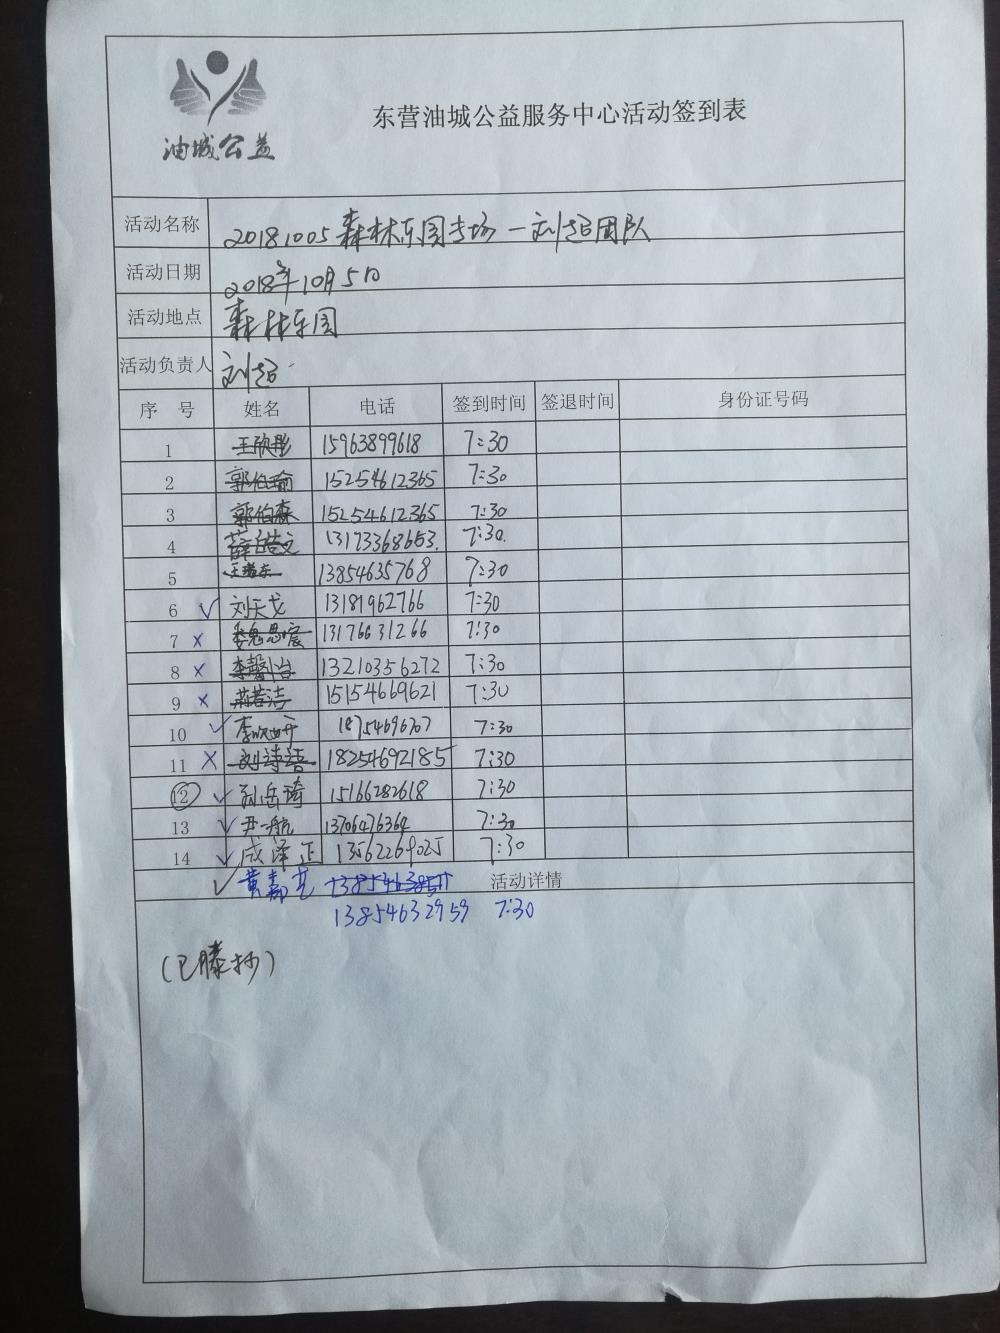 油城公益
东营油城公益服务中心活动签到表
活动名称 20181005森林乐园专场一刘超团队
活动日期 2018年10月5日
活动地点 森林乐园
活动负责人 刘超
序 号 姓名 电话 签到时间 签退时间 身份证号码
1 王欣彤 15963899618 7:30
2 郭伯瑜 15254612365 7:30
3 郭伯森 15254612365 7:30
4 13173368653. 7:30.
5 13854635768 7:30
6 ✓ 刘天戈 13181962766 7:30
7 × 13176631266 7:30
8 × 13210356272 7:30
9 × 15154669621 7:30
10 ✓ 18754696767 7:30
11 × 刘诗语 18254692185 7:30
12 ✓ 孙岳琦 15166282618 7:30
13 ✓ 尹一航 13706476364 7:30
14 ✓ 成泽正 13562269025 7:30
✓ 黄嘉艺 活动详情
13854632959 7:30
(已滕抄)